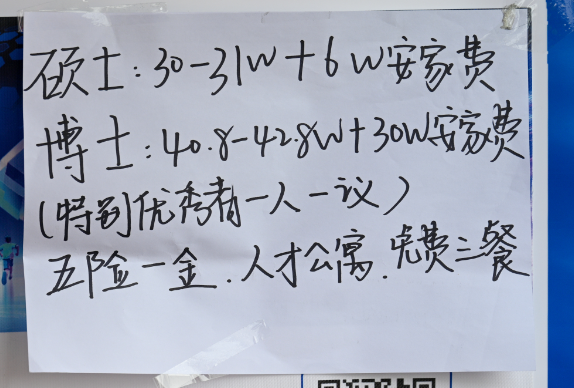 硕士：30-31W+6W安家费
博士：40.8-42.8W+30W安家费
（特别优秀者一人一议）
五险一金.人才公寓.免费三餐